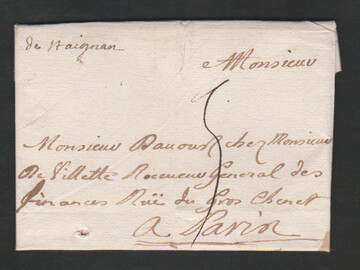 de St aignan
Monsieur
Monsieur Davoust chez Monsieur
De Villette Receveur General des
finances Rüe du Gros Chenet
A Paris